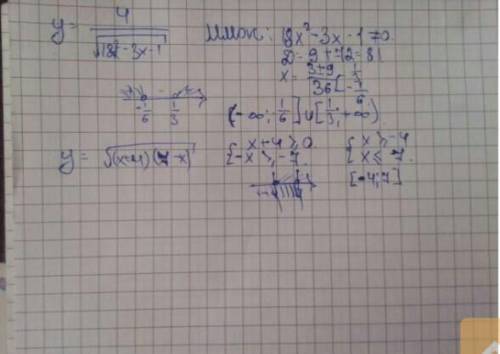 y = 4 / √(18x² - 3x - 1)
18x² - 3x - 1 ≠ 0
D = 9 + 72 = 81
x = (3 ± 9) / 36 [ 1/3 ; -1/6
-1/6 1/3
(-∞; 1/6] ∪ [1/3; +∞)
y = √((x+4)(7-x))
{ x + 4 ≥ 0 { x ≥ -4
{ -x ≥ -7 { x ≤ 7
[-4; 7]